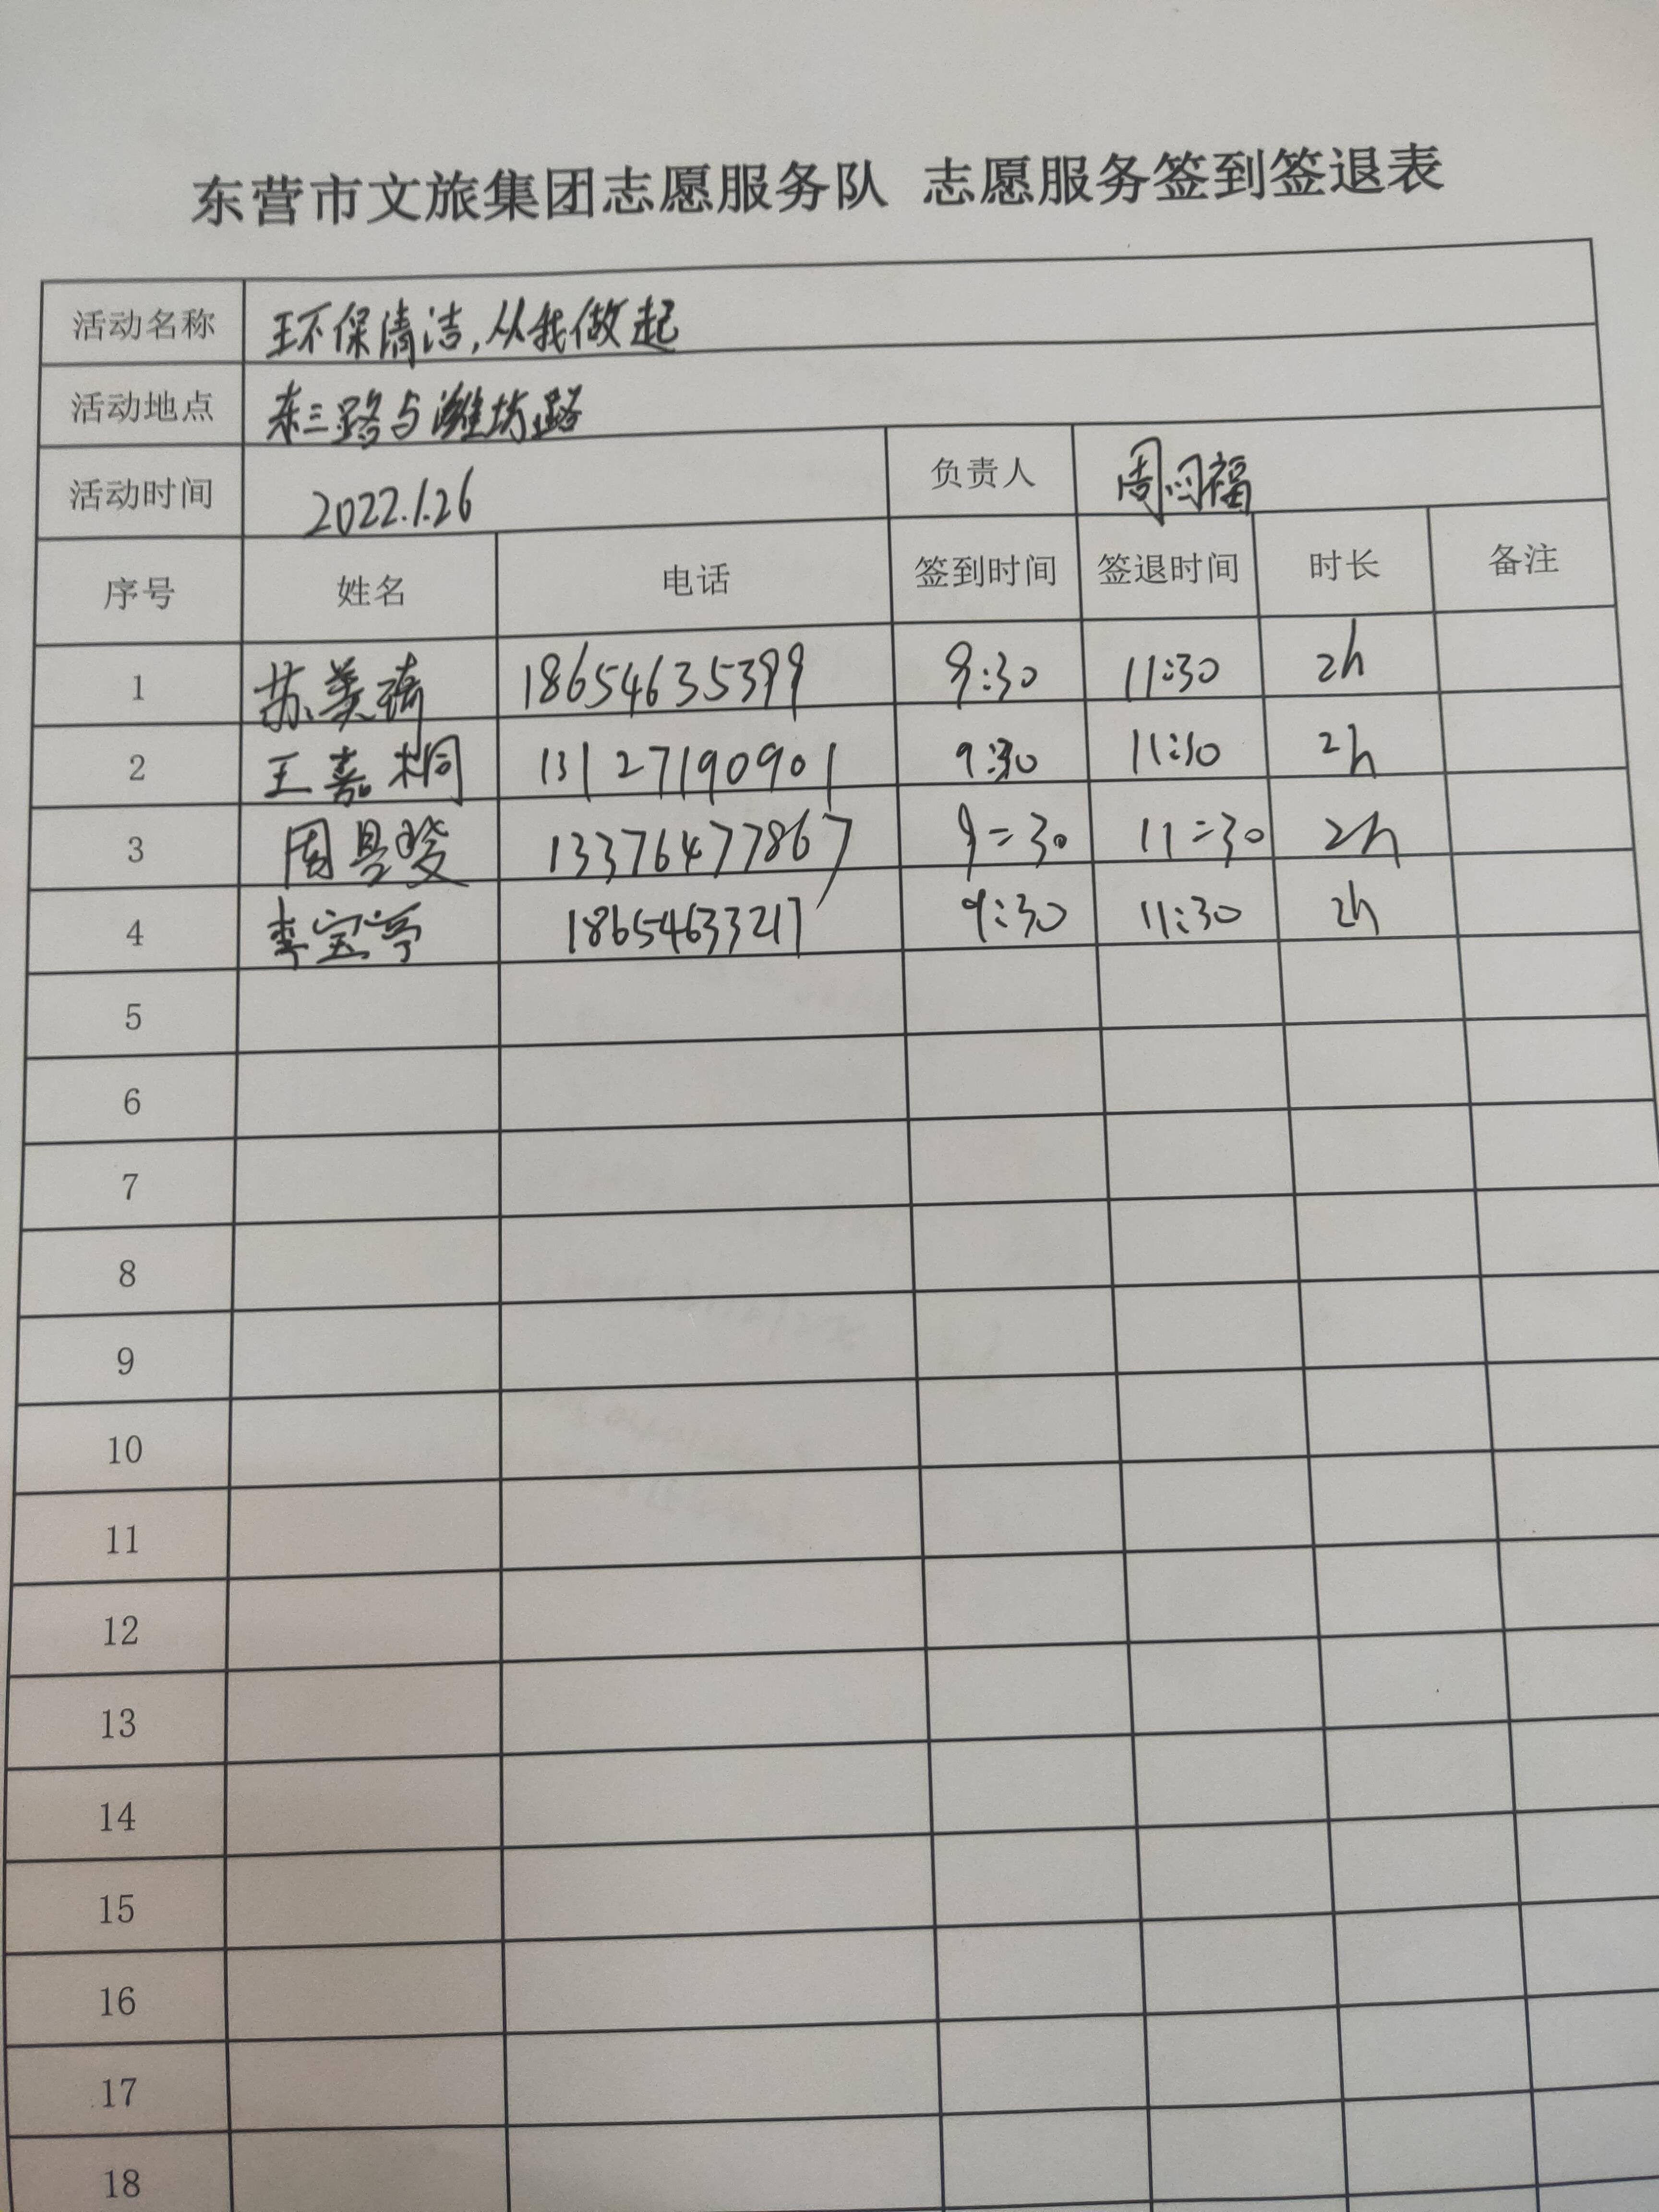 东营市文旅集团志愿服务队 志愿服务签到签退表
活动名称 环保清洁,从我做起
活动地点 东三路与潍坊路
活动时间 2022.1.26 负责人 周同福
序号 姓名 电话 签到时间 签退时间 时长 备注
1 苏美琦 18654635399 9:30 11:30 2h
2 王嘉桐 13127190901 9:30 11:30 2h
3 周昱 13376477867 9:30 11:30 2h
4 李宝亭 18654633217 9:30 11:30 2h
5
6
7
8
9
10
11
12
13
14
15
16
17
18